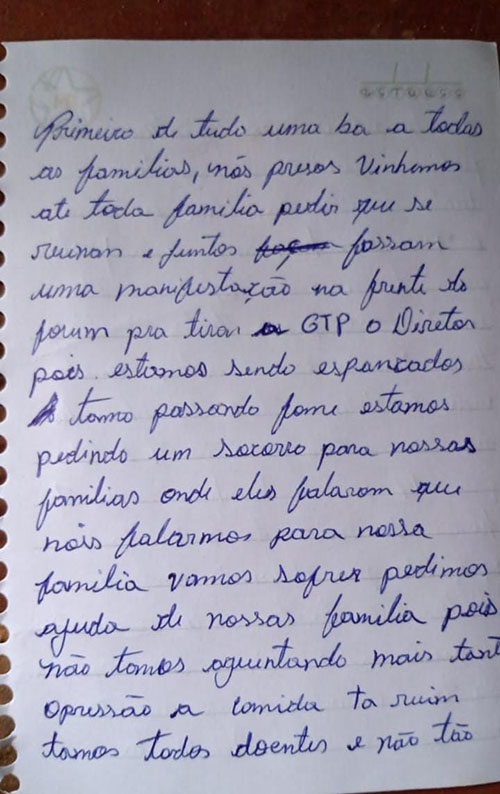 Primeiro de tudo uma ba a todas
as familias, nós presos Vinhemos
ate toda familia pedir que se
reunan e juntos fassam
uma manifestação na frente do
forum pra tirar a GTP o Diretor
pois estamos sendo espancados
tamo passando fome estamos
pedindo um socorro para nossas
familias onde eles falaram que
nóis falarmos para nossa
familia vamos sofrer pedimos
ajuda de nossas familia pois
não tamos aguentando mais tant
opressão a comida ta ruim
tamos todos doentes e não tão